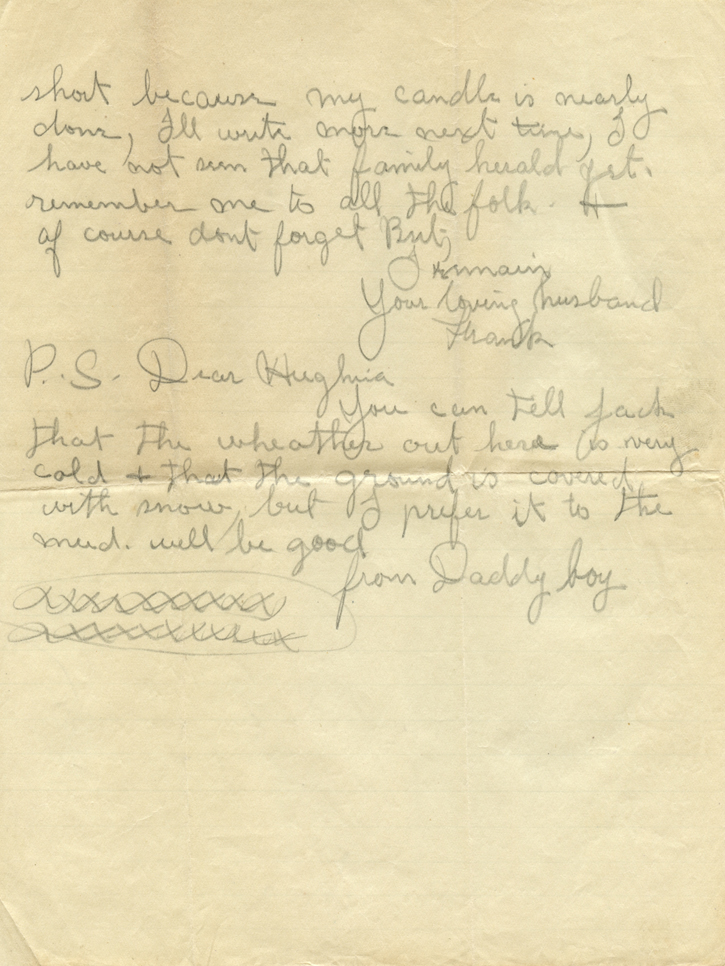 short because my candle is nearly
done, I'll write more next time, I
have not seen that family herald yet.
remember me to all the folk. +
of course dont forget
I remain
Your loving husband
Frank
P.S. Dear Hughia
You can tell Jack
that the wheather out here is very
cold + that the ground is covered
with snow, but I prefer it to the
mud. well be good
from Daddy boy
xxxxxxxxxx
xxxxxxxxxxx